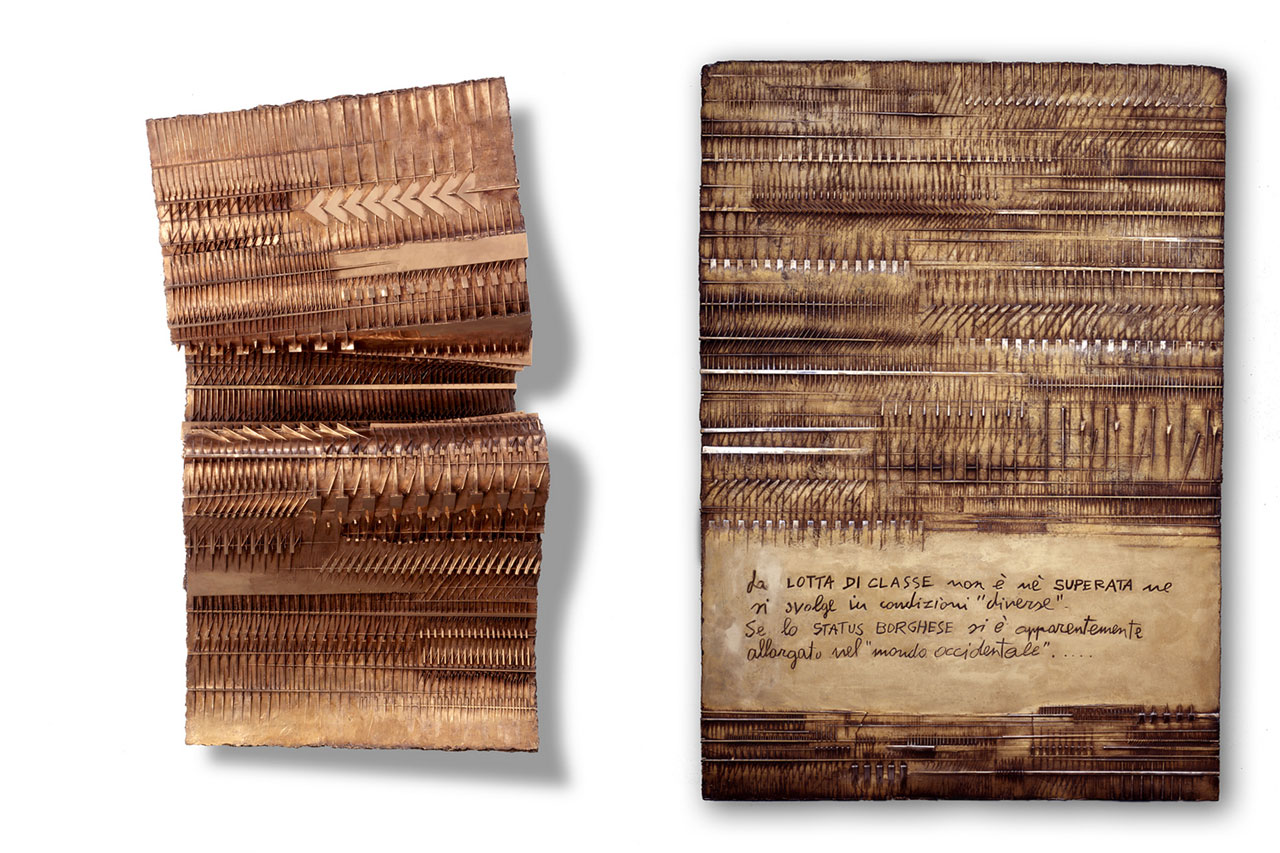 La LOTTA DI CLASSE non è nè SUPERATA ne
si svolge in condizioni "diverse".
Se lo STATUS BORGHESE si è apparentemente
allargato nel "mondo occidentale".....